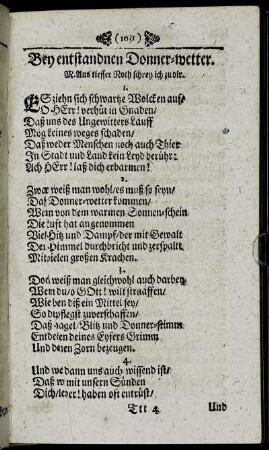 (1031)
Bey entstandnen Donner-wetter.
M. Aus tieffer Noth schrey ich zu dir.
1.
ES ziehn sich schwartze Wolcken auf/
O HErr! verhüt in Gnaden/
Daß uns des Ungewitters Lauff
Mög keines weges schaden/
Daß weder Menschen noch auch Thier
In Stadt und Land kein Leyd berühr:
Ach HErr! laß dich erbarmen!
2.
Zwar weiß man wohl/es muß so seyn/
Daß Donner-wetter kommen/
Wenn von dem warmen Sonnen-schein
Die Lufft hat angenommen
Viel Hitz und Dampf/der mit Gewalt
Den Himmel durchbricht und zerspalt
Mit vielen großen Krachen.
3.
Doch weiß man gleichwohl auch darbey
Wenn du/o GOtt! wilt straaffen/
Wie eben diß ein Mittel sey/
So du pflegst zu verschaffen/
Daß Hagel/Blitz und Donner-stimm
Entdecken deines Eyfers Grimm
Und deinen Zorn bezeugen.
4.
Und weil dann uns auch wissend ist/
Daß wir mit unsern Sünden
Dich/leider! haben oft entrüst/
Ttt 4
Und